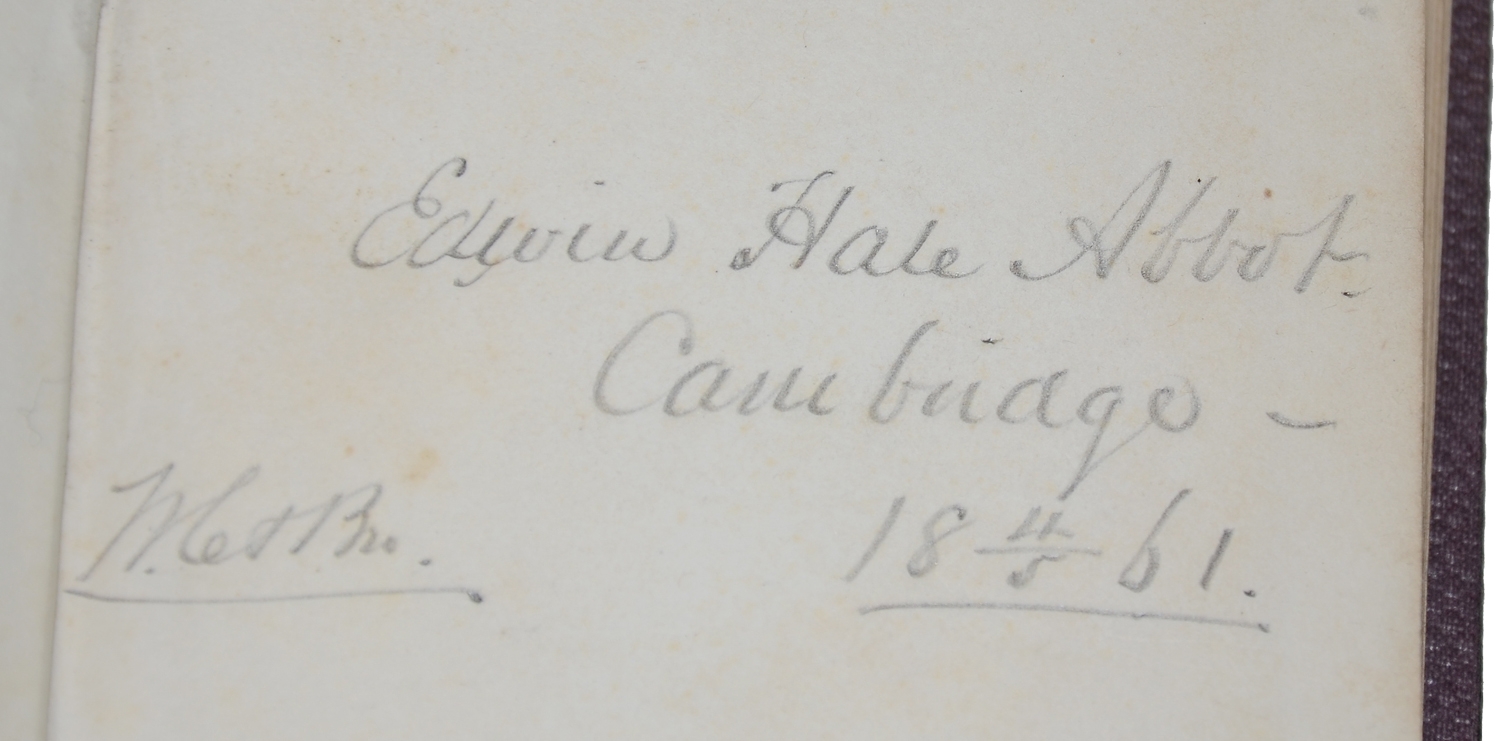 Edwin Hale Abbot
Cambridge –
18 4/5 61.